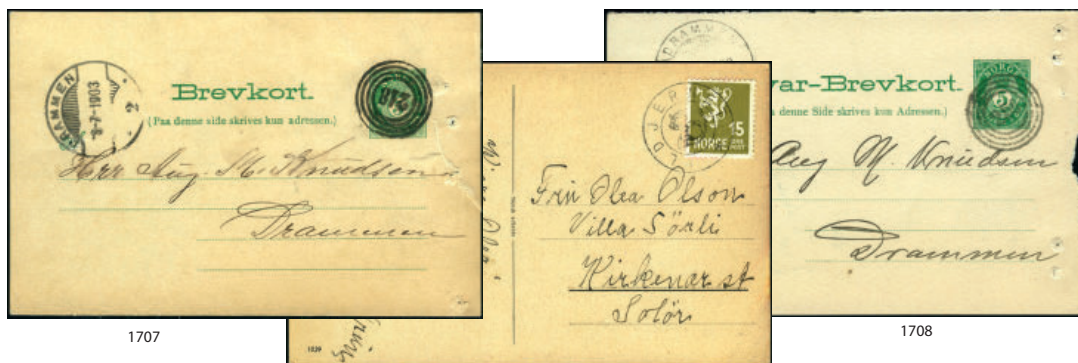 DRAMMEN
8-7-1903
2
Brevkort.
(Paa denne side skrives kun Adressen.)
248
Herr Aug. M. Knudsen
Drammen
1707
15
NORGE
Frk Olea Olson
Villa Sörli
Kirkenær st
Solör
1029
DRAMMEN
var-Brevkort.
a denne Side skrives kun Adressen.)
NORGE
5
Aug M. Knudsen
Drammen
1708